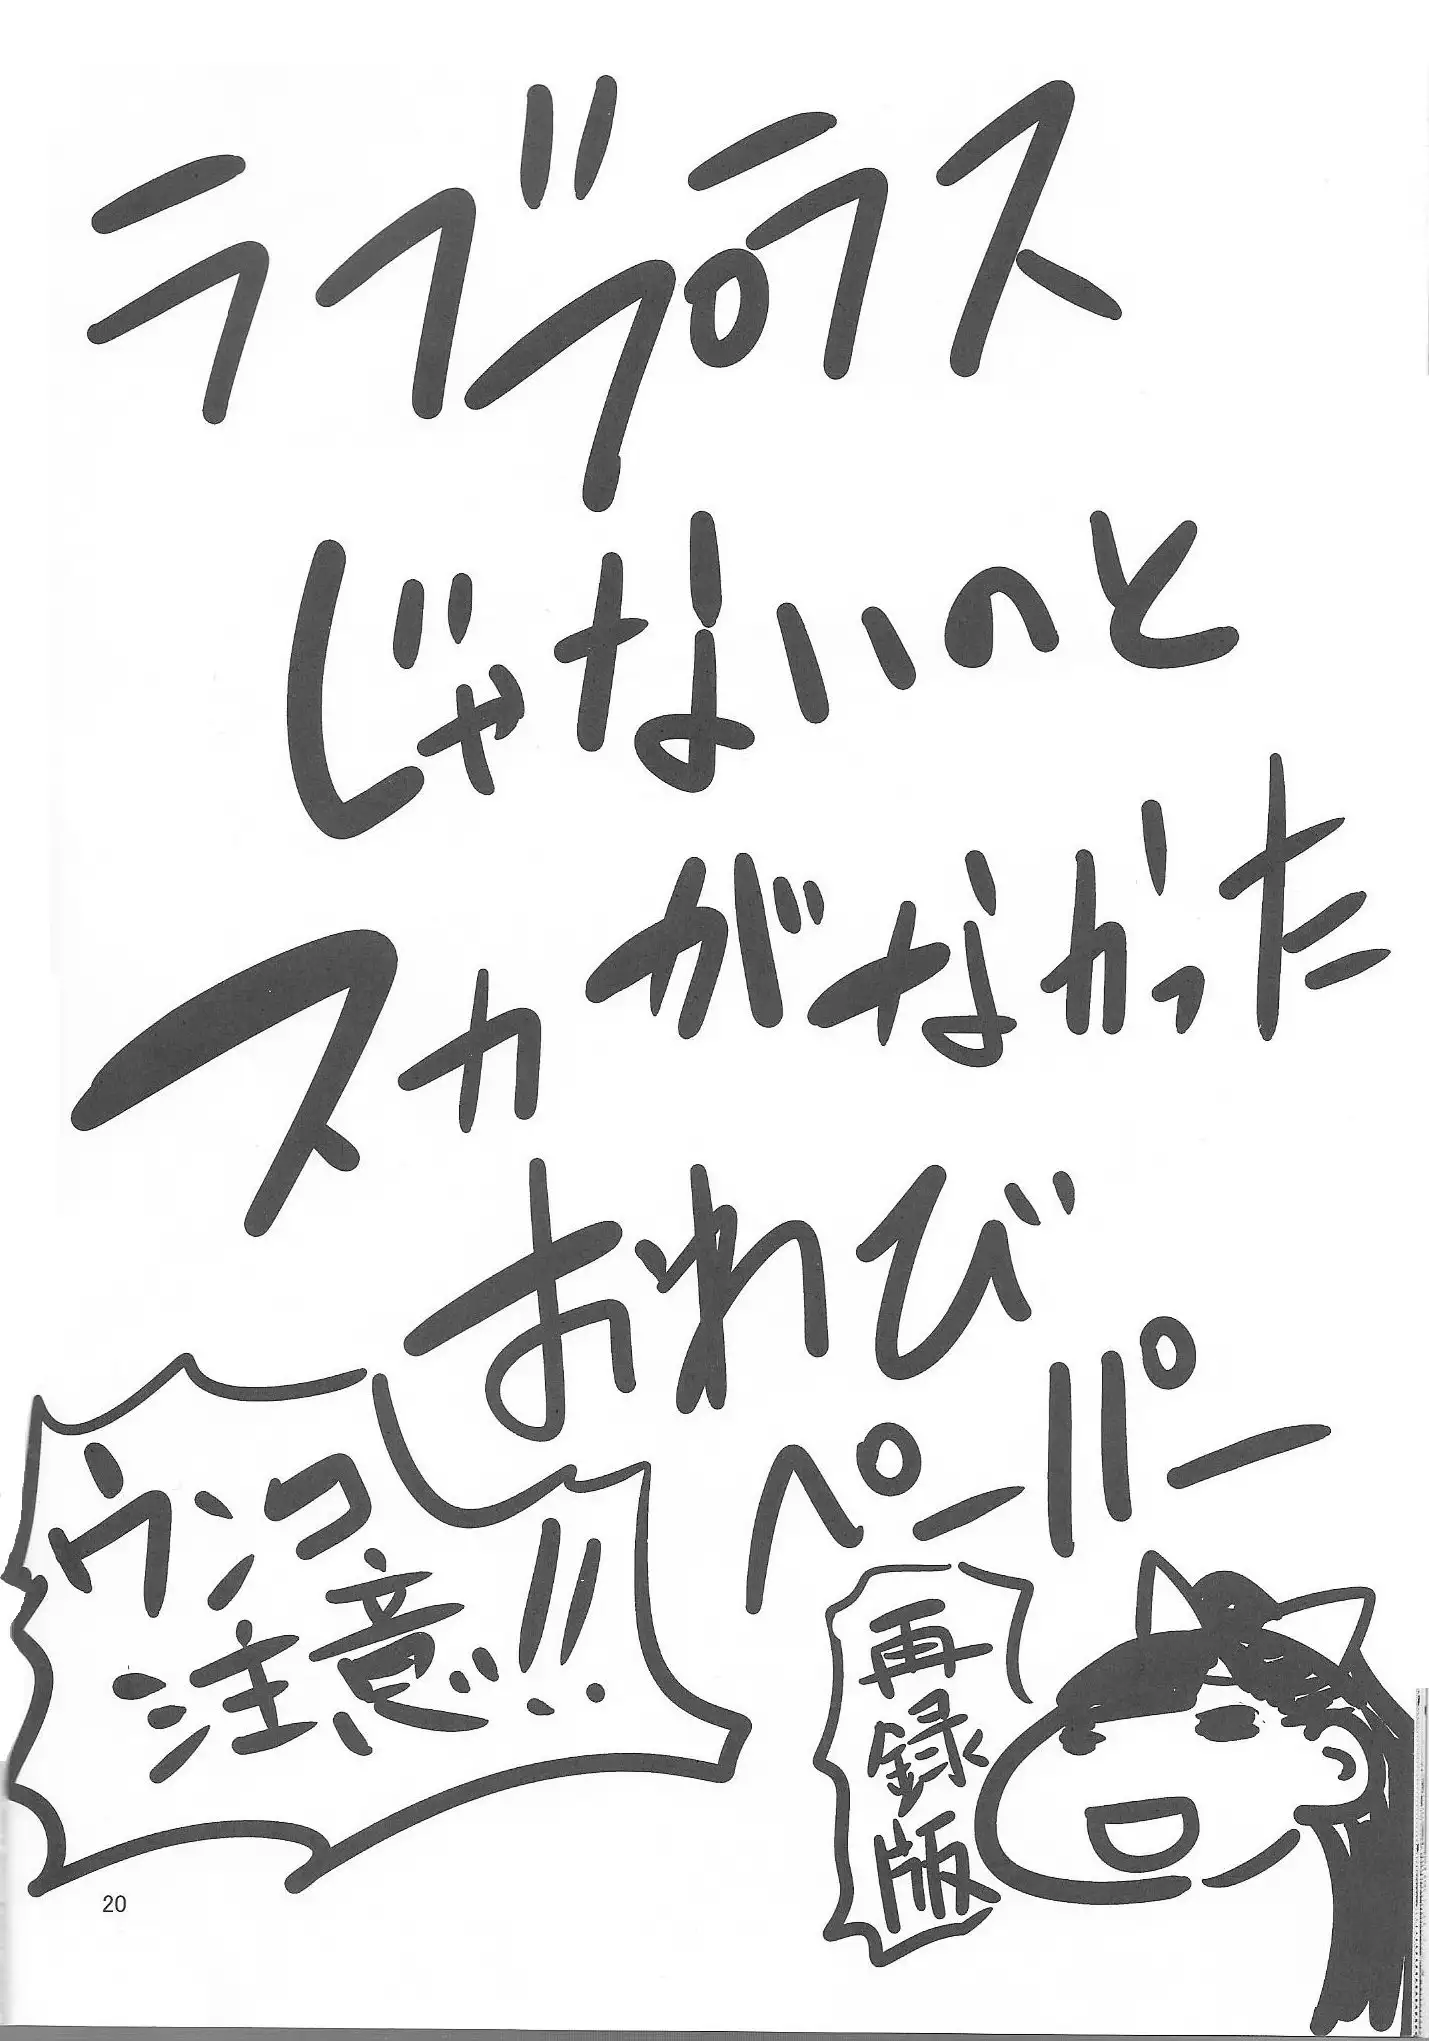 ラブプラス
じゃないのと
スカがなかった
おわび
ペーパー
ウンコ
注意!!
再録版
20